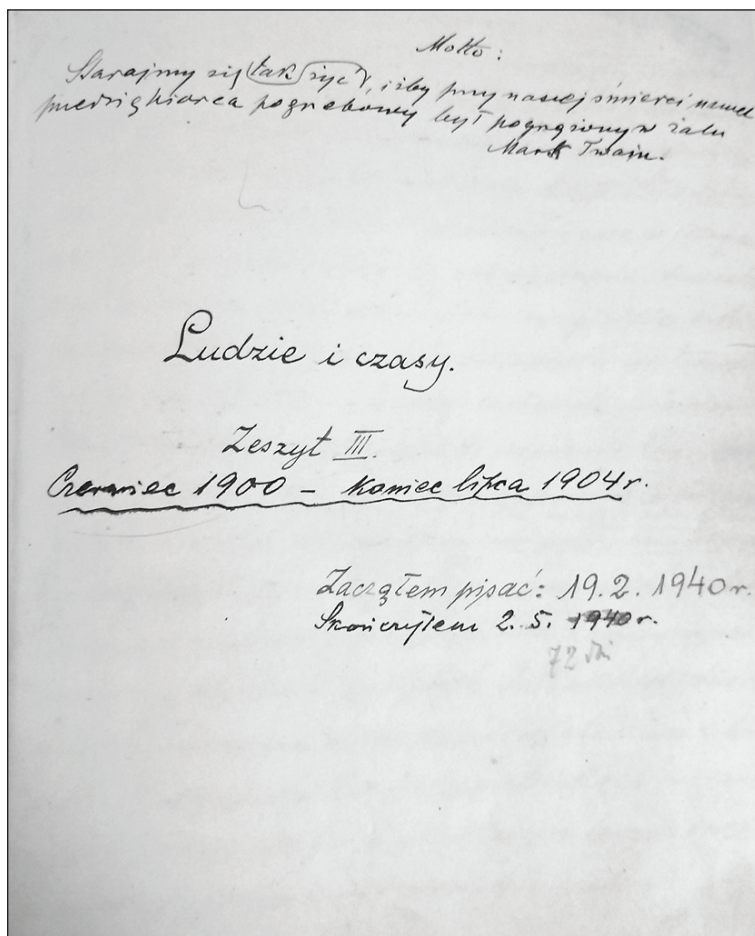 Motto:
Starajmy się tak żyć, iżby przy naszej śmierci nawet
przedsiębiorca pogrzebowy był pogrążony w żalu
Mark Twain.
Ludzie i czasy.
Zeszyt III.
Czerwiec 1900 – koniec lipca 1904 r.
Zacząłem pisać: 19. 2. 1940 r.
Skończyłem 2. 5. 1940 r.
72 dni